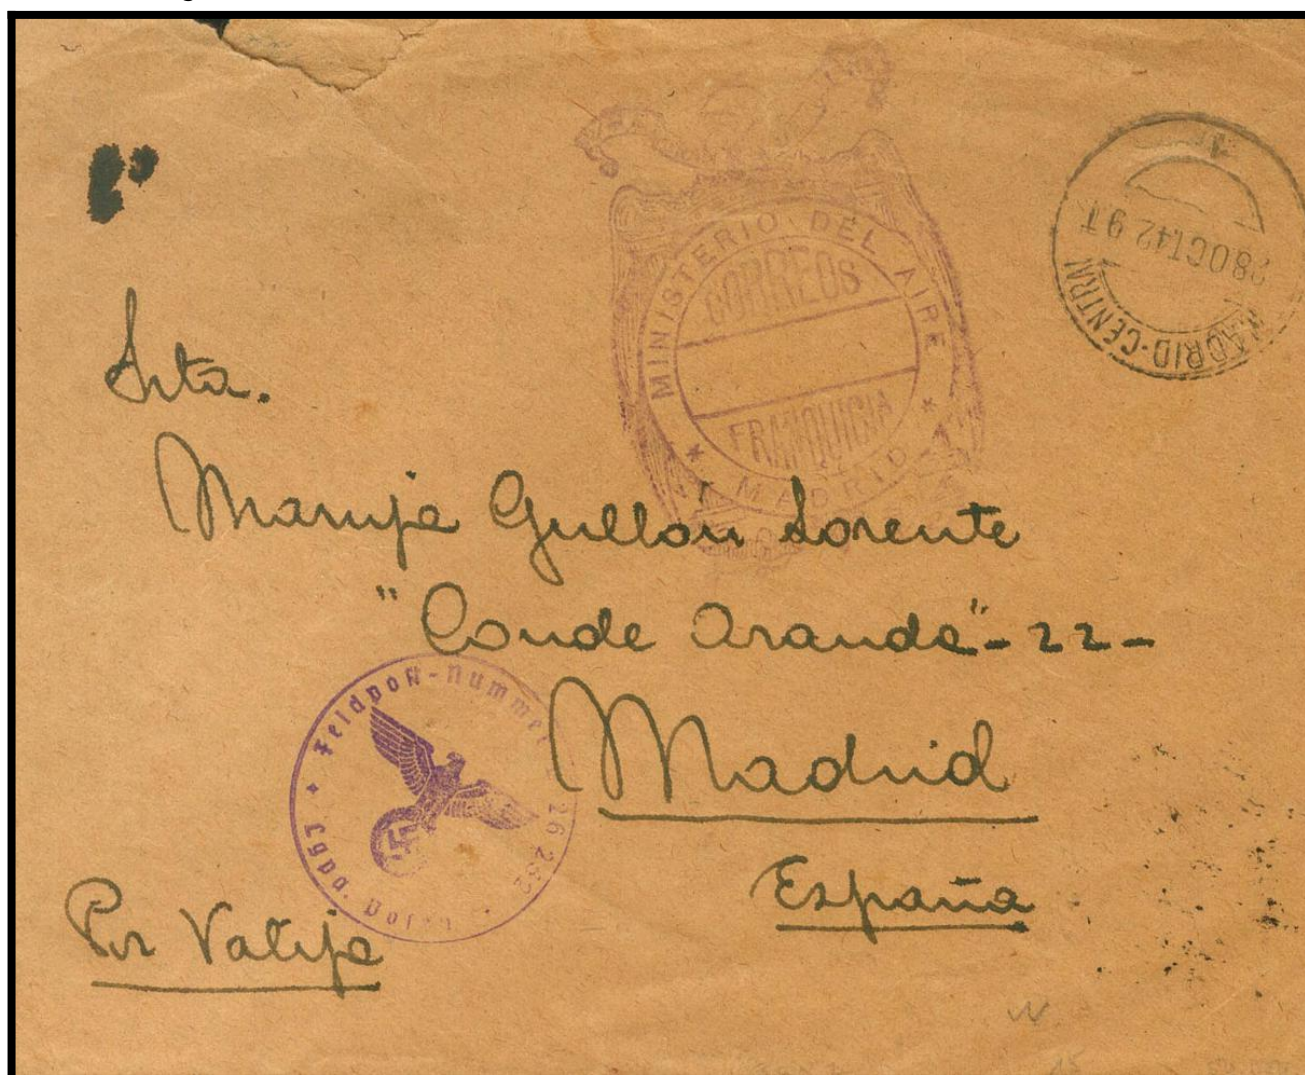 MINISTERIO DEL AIRE
CORREOS
FRANQUICIA
* MADRID *
MADRID-CENTRAL
28 OCT 42 9T
Srta.
Maruja Gullón Lorente
"Conde Aranda"-22-
Madrid
España
Feldpost-Nummer 26 232
Por Valija